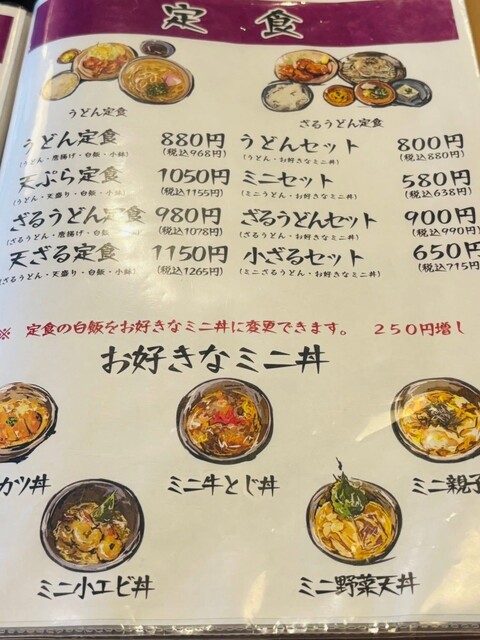 定食
うどん定食
ざるうどん定食
うどん定食 880円
(うどん・唐揚げ・白飯・小鉢) (税込968円)
天ぷら定食 1050円
(うどん・天盛り・白飯・小鉢) (税込1155円)
ざるうどん定食 980円
(ざるうどん・唐揚げ・白飯・小鉢) (税込1078円)
天ざる定食 1150円
(ざるうどん・天盛り・白飯・小鉢) (税込1265円)
うどんセット 800円
(うどん・お好きなミニ丼) (税込880円)
ミニセット 580円
(ミニうどん・お好きなミニ丼) (税込638円)
ざるうどんセット 900円
(ざるうどん・お好きなミニ丼) (税込990円)
小ざるセット 650円
(ミニざるうどん・お好きなミニ丼) (税込715円)
※ 定食の白飯をお好きなミニ丼に変更できます。 250円増し
お好きなミニ丼
カツ丼
ミニ牛とじ丼
ミニ親子
ミニ小エビ丼
ミニ野菜天丼